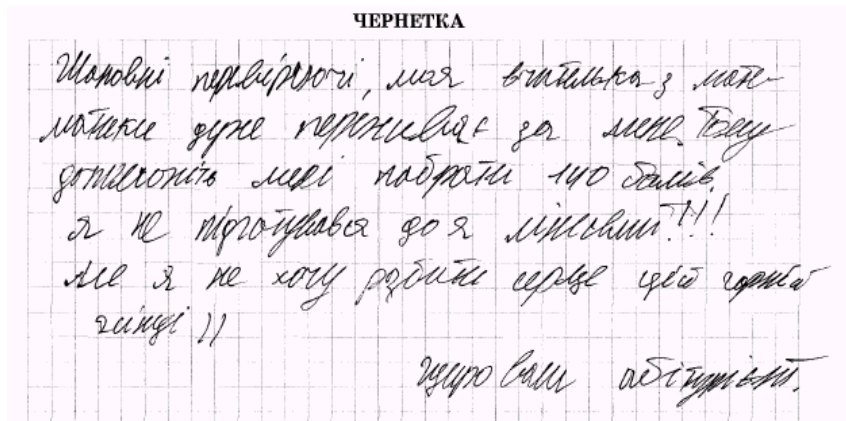 ЧЕРНЕТКА
Шановні перевіряючі, моя вчителька з мате-
матеки дуже переживає за мене. Тому
допоможіть мені набрати 140 балів.
я не підготувався до я лінивий!!!
Але я не хочу розбити серце цій гарній
жінці ))
Щиро Ваш абітурієнт.